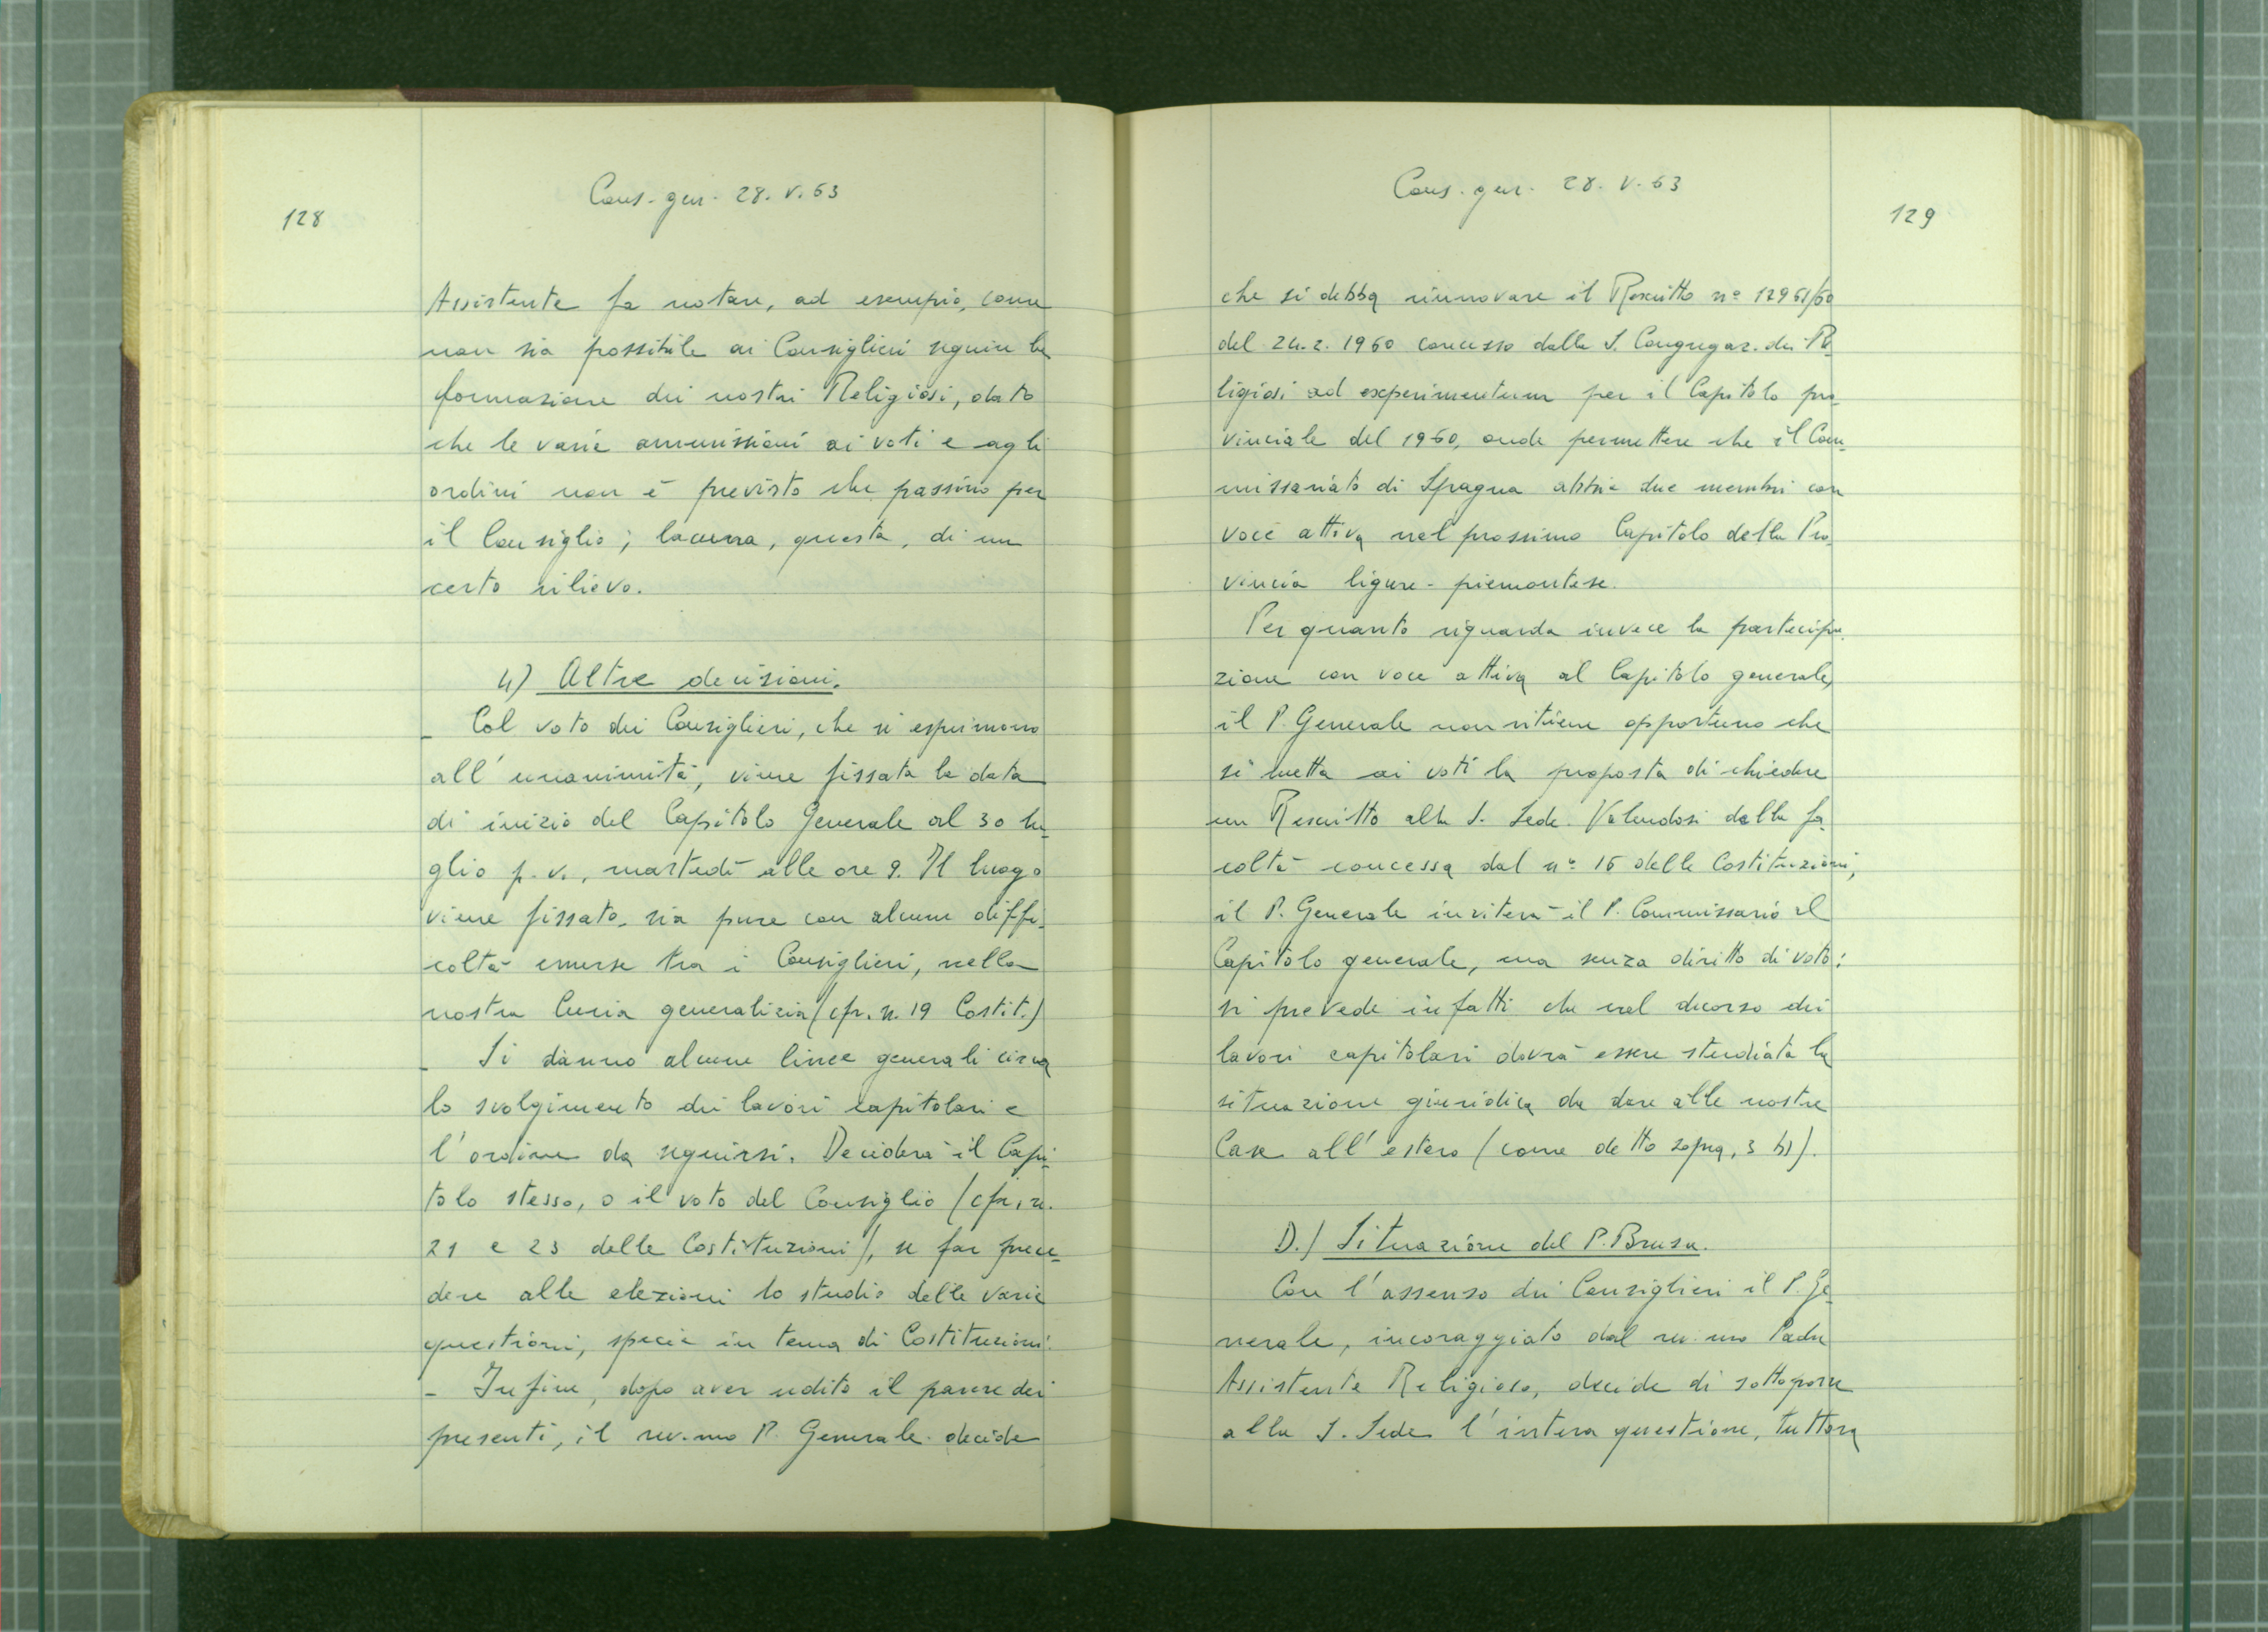 128
Cons. gen. 28. V. 63
Assistente fa notare, ad esempio, come
non sia possibile ai Consiglieri seguire la
formazione dei nostri Religiosi, dato
che le varie ammissioni ai voti e agli
ordini non è previsto che passino per
il Consiglio; lacuna, questa, di un
certo rilievo.
4) Altre decisioni.
- Col voto dei Consiglieri, che si esprimono
all'unanimità, viene fissata la data
di inizio del Capitolo Generale al 30 lu-
glio p. v., martedì alle ore 9. Il luogo
viene fissato, sia pure con alcune diffi-
coltà emerse tra i Consiglieri, nella
nostra Curia generalizia (cfr. n. 19 Costit.)
- Si danno alcune linee generali circa
lo svolgimento dei lavori capitolari e
l'ordine da seguirsi. Deciderà il Capi-
tolo stesso, o il voto del Consiglio (cfr. n.
21 e 23 delle Costituzioni), se far prece-
dere alle elezioni lo studio delle varie
questioni, specie in tema di Costituzioni.
- Infine, dopo aver udito il parere dei
presenti, il rev.mo P. Generale decide
Cons. gen. 28. V. 63
129
che si debba rinnovare il Rescritto nº 12961/60
del 24.2.1960 concesso dalla S. Congregaz. dei Re-
ligiosi ad experimentum per il Capitolo pro-
vinciale del 1960, onde permettere che il Com-
missariato di Spagna abbia due membri con
voce attiva nel prossimo Capitolo della Pro-
vincia ligure-piemontese.
Per quanto riguarda invece la partecipa-
zione con voce attiva al Capitolo generale,
il P. Generale non ritiene opportuno che
si metta ai voti la proposta di chiedere
un Rescritto alla S. Sede. Valendosi della fa-
coltà concessa dal nº 16 delle Costituzioni,
il P. Generale inviterà il P. Commissario al
Capitolo generale, ma senza diritto di voto:
si prevede infatti che nel decorso dei
lavori capitolari dovrà essere studiata la
situazione giuridica da dare alle nostre
Case all'estero (come detto sopra, 3 b)).
D.) Situazione del P. Brusa.
Con l'assenso dei Consiglieri il P. Ge-
nerale, incoraggiato dal rev.mo Padre
Assistente Religioso, decide di sottoporre
alla S. Sede l'intera questione, tuttora